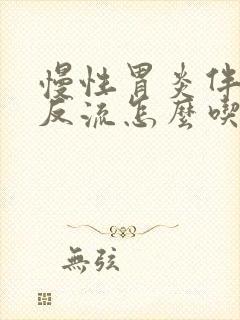 慢性胃炎伴
反流怎麼喫
無弦